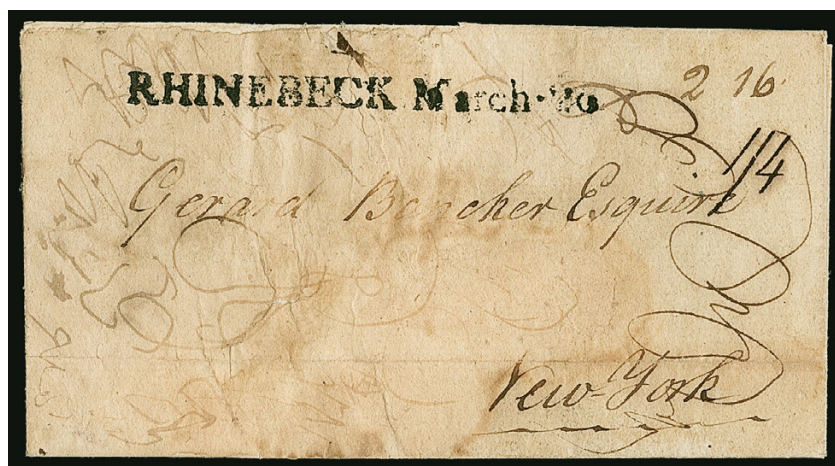 RHINEBECK March·20
2 16
1/4
Gerard Bancker Esquire
New-York